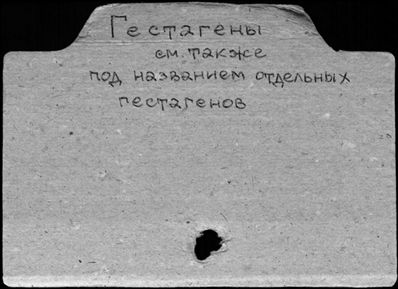 Гестагены
см. также
под названием отдельных
гестагенов